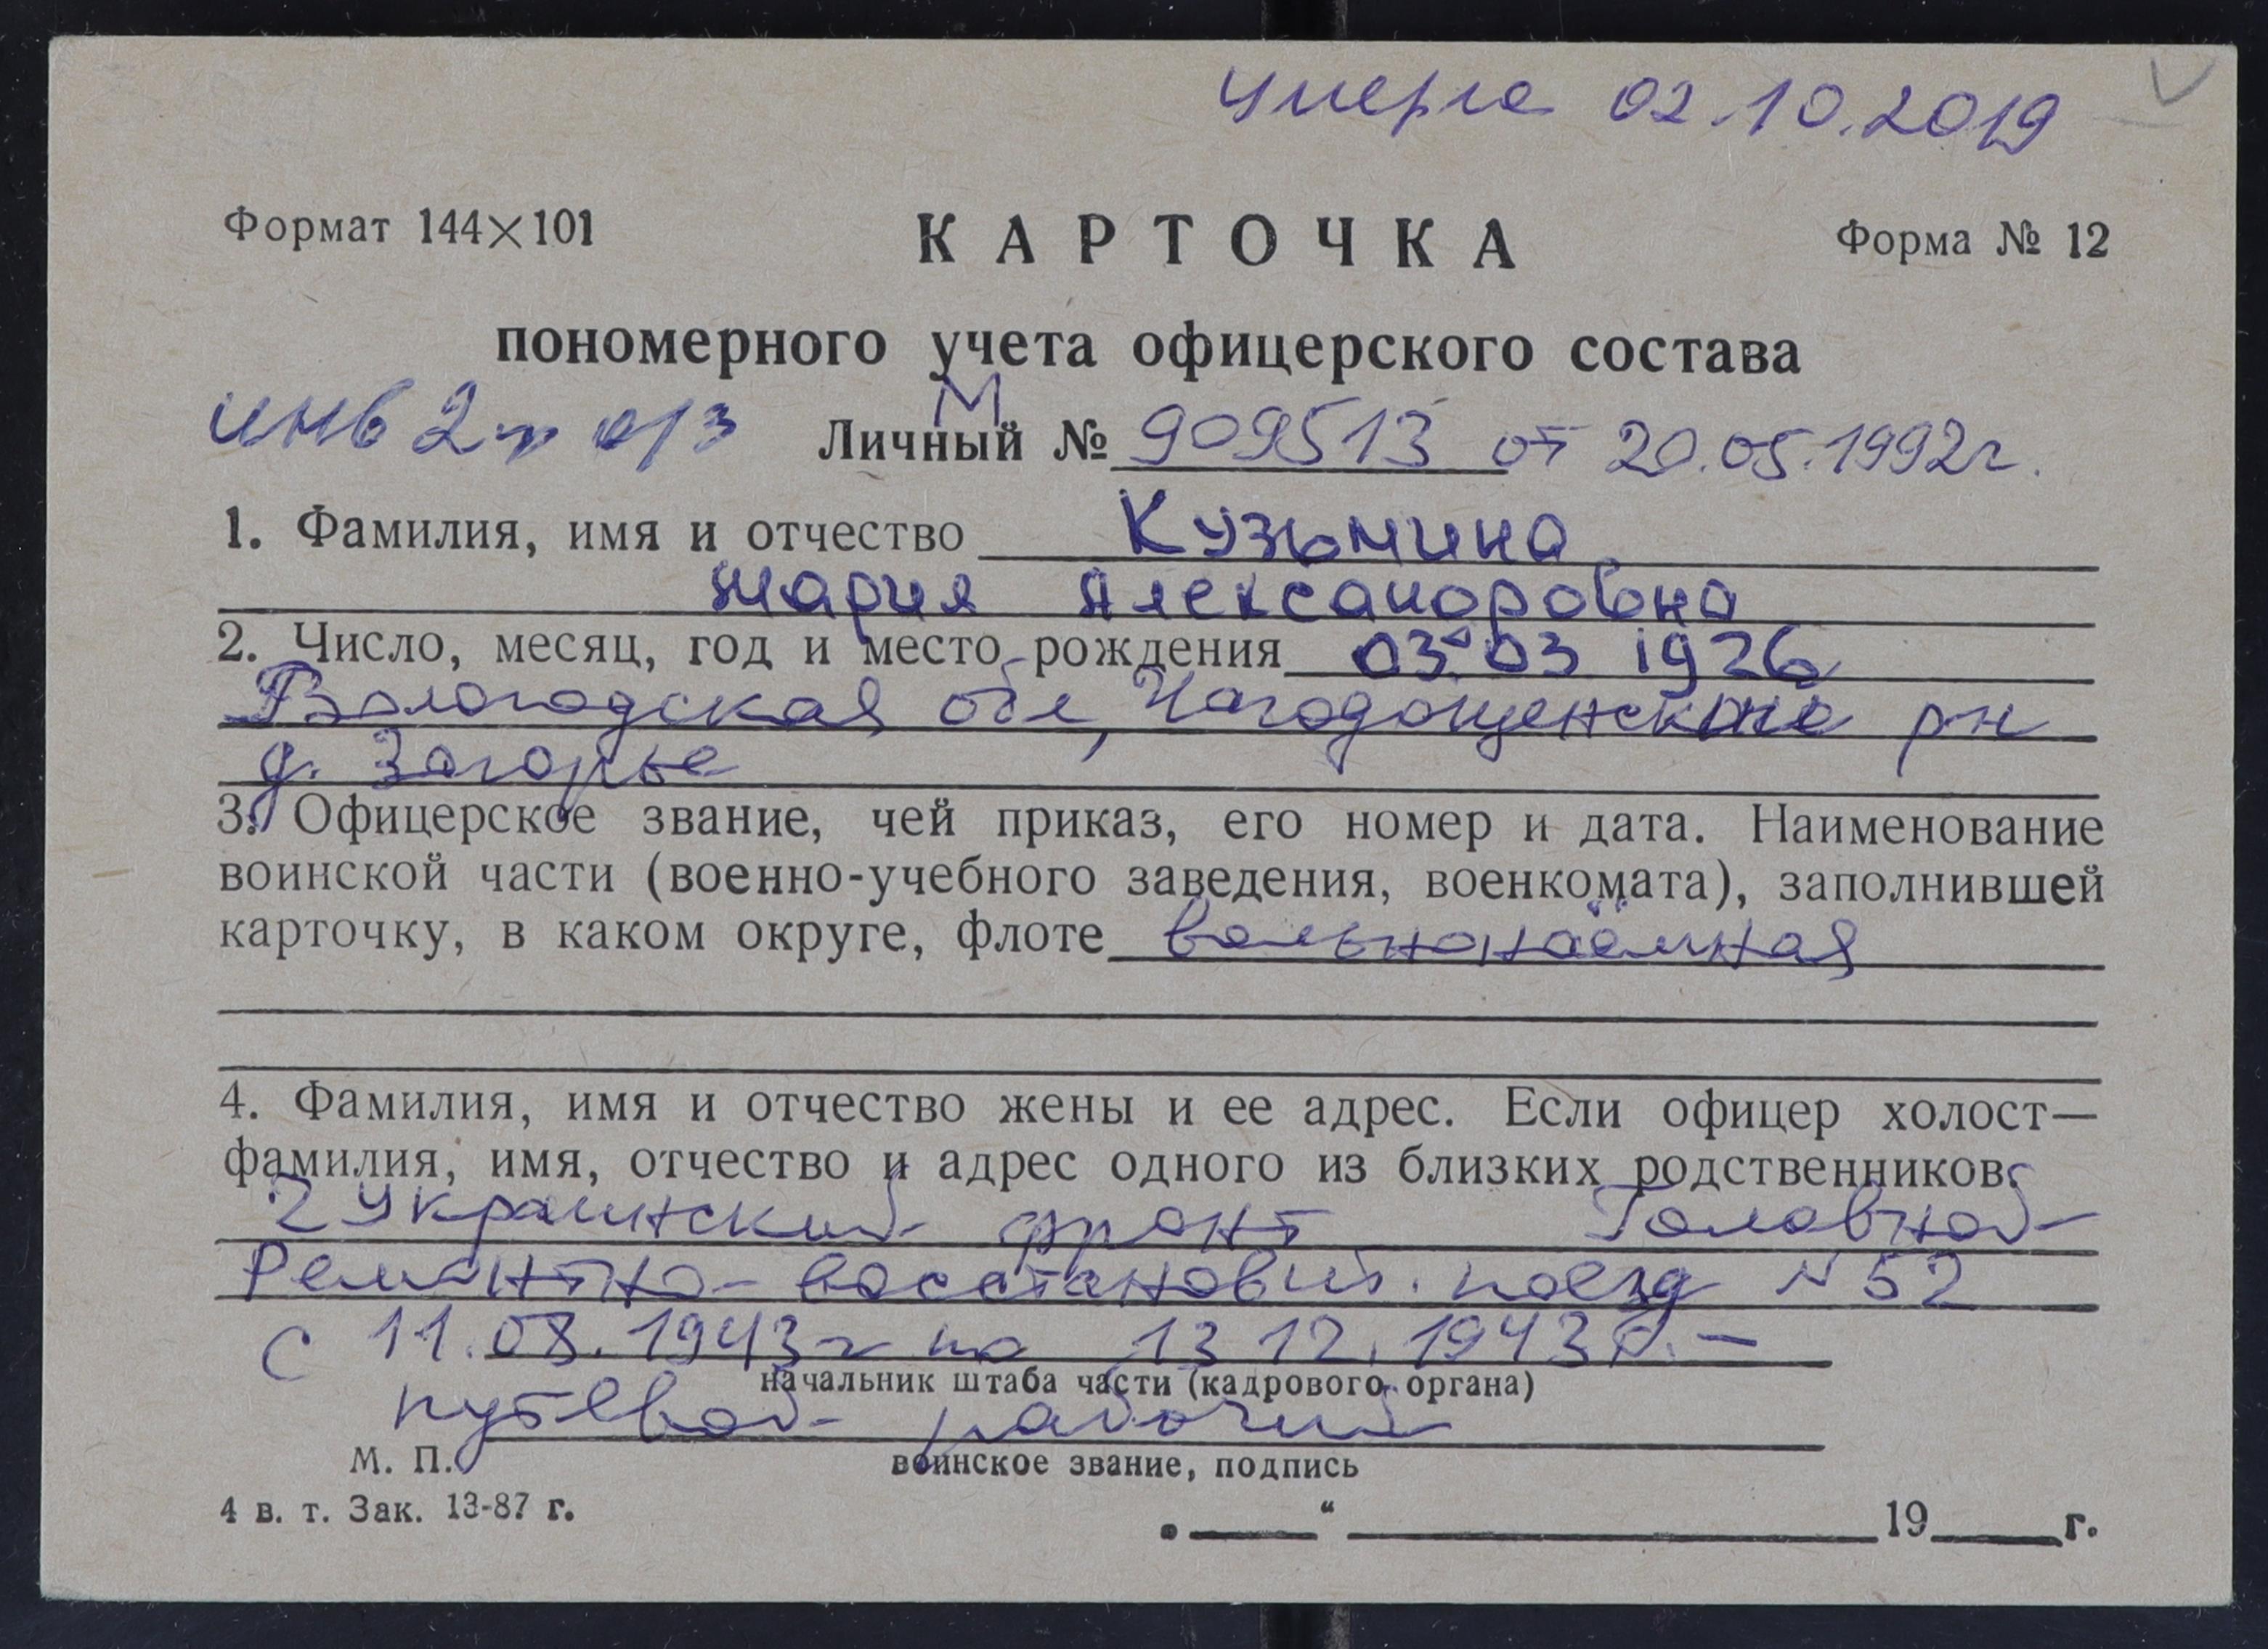 умерла 02.10.2019
Формат 144×101 КАРТОЧКА Форма № 12
пономерного учета офицерского состава
инв 2 гр о/з Личный № М 909513 от 20.05.1992г.
1. Фамилия, имя и отчество Кузьмина
Мария Александровна
2. Число, месяц, год и место рождения 03.03 1926
Вологодская обл, Чагодощенский рн
д. Загорье
3. Офицерское звание, чей приказ, его номер и дата. Наименование
воинской части (военно-учебного заведения, военкомата), заполнившей
карточку, в каком округе, флоте вольнонаёмная
4. Фамилия, имя и отчество жены и ее адрес. Если офицер холост—
фамилия, имя, отчество и адрес одного из близких родственников.
2 Украинский фронт Головной
Ремонтно-восстановит. поезд N 52
с 11.08.1943г по 13 12.1943г. —
начальник штаба части (кадрового органа)
путевой рабочий
М. П. воинское звание, подпись
4 в. т. Зак. 13-87 г.
„ “ 19 г.